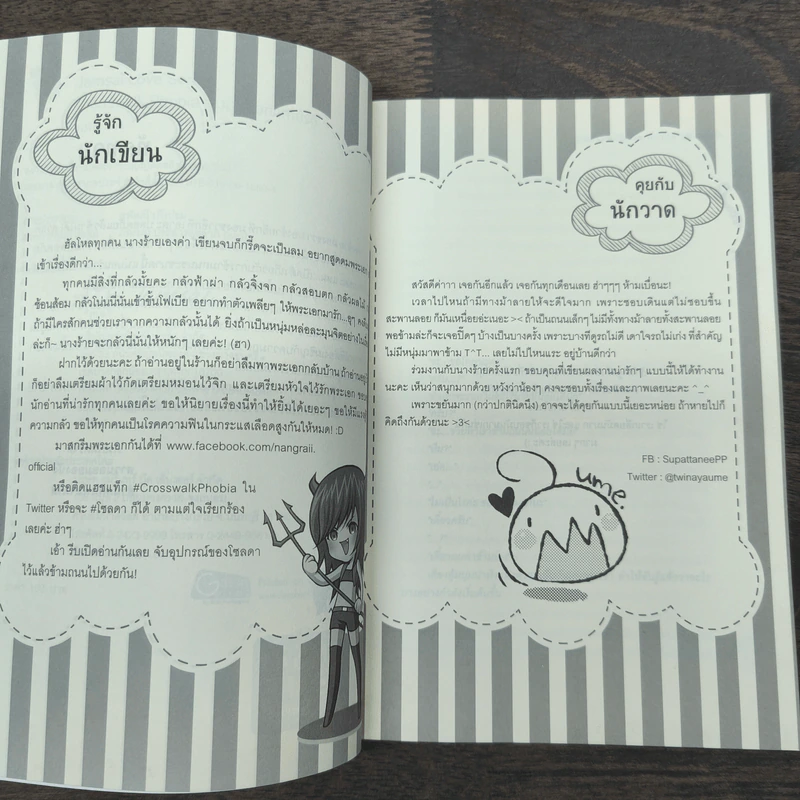 รู้จัก
นักเขียน
ฮัลโหลทุกคน นางร้ายเองค่า เขียนจบก็กรี๊ดจะเป็นลม อยากสูดดมพระเอก
เข้าเรื่องดีกว่า...
ทุกคนมีสิ่งที่กลัวมั้ยคะ กลัวฟ้าผ่า กลัวจิ้งจก กลัวสอบตก กลัวผลไม้
ซ้อนส้อม กลัวโน่นนี่นั่นเข้าขั้นโฟเบีย อยากทำตัวเพลียๆ ให้พระเอกมารัก...
ถ้ามีใครสักคนช่วยเราจากความกลัวนั้นได้ ยิ่งถ้าเป็นหนุ่มหล่อละมุนจิตอย่างใน
ล่ะก็~ นางร้ายจะกลัวนี่นั่นให้หนักๆ เลยค่ะ! (ฮา)
ฝากไว้ด้วยนะคะ ถ้าอ่านอยู่ในร้านก็อย่าลืมพาพระเอกกลับบ้าน ถ้าอ่านอยู่
ก็อย่าลืมเตรียมผ้าไว้กัดเตรียมหมอนไว้จิก และเตรียมหัวใจไว้รักพระเอก ขอบ
นักอ่านที่น่ารักทุกคนเลยค่ะ ขอให้นิยายเรื่องนี้ทำให้ยิ้มได้เยอะๆ ขอให้มี
ความกลัว ขอให้ทุกคนเป็นโรคความฟินในกระแสเลือดสูงกันให้หมด! :D
มาสกรีมพระเอกกันได้ที่ www.facebook.com/nangraii.
official
หรือติดแฮชแท็ก #CrosswalkPhobia ใน
Twitter หรือจะ #โซลดา ก็ได้ ตามแต่ใจเรียกร้อง
เลยค่ะ ฮ่าๆ
เอ้า รีบเปิดอ่านกันเลย จับอุปกรณ์ของโซลดา
ไว้แล้วข้ามถนนไปด้วยกัน!
คุยกับ
นักวาด
สวัสดีค่าาา เจอกันอีกแล้ว เจอกันทุกเดือนเลย ฮ่าๆๆๆ ห้ามเบื่อนะ!
เวลาไปไหนถ้ามีทางม้าลายให้จะดีใจมาก เพราะชอบเดินแต่ไม่ชอบขึ้น
สะพานลอย ก็มันเหนื่อยอ่ะเนอะ >< ถ้าเป็นถนนเล็กๆ ไม่มีทั้งทางม้าลายทั้งสะพานลอย
พอข้ามล่ะก็จะเจอปี๊ดๆ บ้างเป็นบางครั้ง เพราะบางทีดูรถไม่ดี เดาใจรถไม่เก่ง ที่สำคัญ
ไม่มีหนุ่มมาพาข้าม T^T... เลยไม่ไปไหนแระ อยู่บ้านดีกว่า
ร่วมงานกับนางร้ายครั้งแรก ขอบคุณที่เขียนผลงานน่ารักๆ แบบนี้ให้ได้ทำงาน
นะคะ เห็นว่าสนุกมากด้วย หวังว่าน้องๆ คงจะชอบทั้งเรื่องและภาพเลยนะคะ ^_^
เพราะขยันมาก (กว่าปกตินิดนึง) อาจจะได้คุยกันแบบนี้เยอะหน่อย ถ้าหายไปก็
คิดถึงกันด้วยนะ >3<
FB : SupattaneePP
Twitter : @twinayaume
ume.